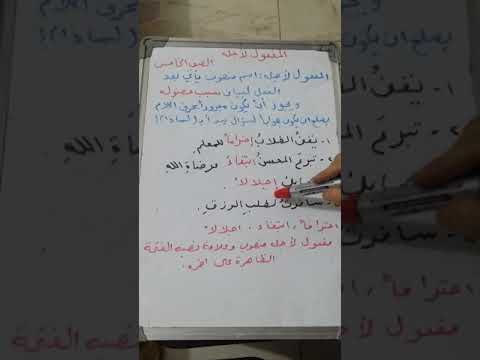 المفعول لأجله
الصف الخامس
المفعول لأجله: اسم منصوب يأتي بعد
الفعل لبيان سبب حصوله
و يجوز أن يكون مجرور بحرف اللام
يصلح ان يكون جواباً لسؤال يبدأ بـ (لماذا؟)
١- يقف الطلابُ إحتراماً للمعلمِ
٢- تبرع المحسنُ ابتغاءَ مرضاةِ اللهِ
إجلالاً
سافرتُ لطلبِ الرزقِ.
احتراماً، ابتغاء، اجلالاً
مفعول لأجله منصوب وعلامة نصبه الفتحة
الظاهرة على اخره.